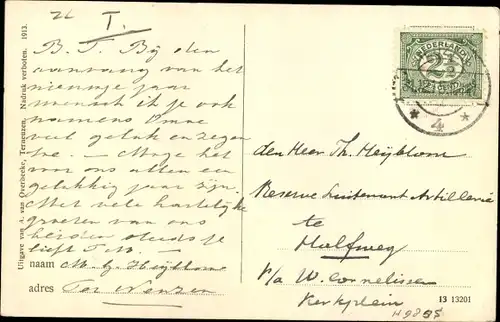 T.
B. T. Bij den
aanvang van het
nieuwe jaar
wensch ik je ook
namens Omoe
veel geluk en zegen
toe. — Moge het
voor ons allen een
gelukkig jaar zijn.
Met vele hartelijke
groeten van ons
beiden steeds je
liefh.
naam M. G. Heijblom
adres Ter Neuzen
Uitgave van A. van Overbeeke, Terneuzen. Nadruk verboten. 1913.
NEDERLAND
2½
CENT
4
den Heer Th. Heijblom
Reserve Luitenant Artillerie
te
Halfweg
p/a W. Cornelissen
Kerkplein
13 13201